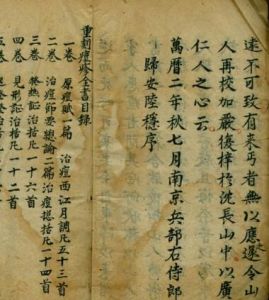 遠不可致有來丐者無以應遂命山
人再校加嚴後梓於沈長山中以廣
仁人之心云
萬曆二年秋七月南京兵部右侍郎
歸安陸穩序
重刻痘疹全書目錄
一卷 原痘賦一篇 治痘西江月調凡五十三首
二卷 治痘節要總論二篇治痘提括凡一十四首
三卷 發熱証治括凡一十六首
四卷 見形証治括凡一十二首
五卷